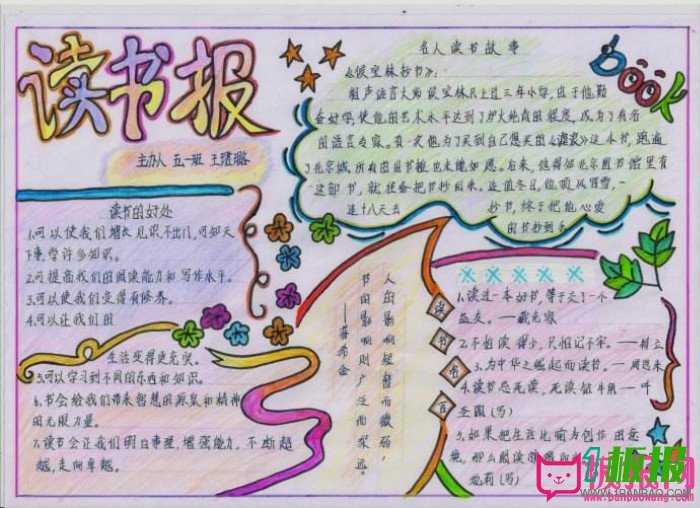 读书报
主办人 五一班 王
读书的好处
1.可以使我们增长见识不出门,可知天
下事,学许多知识。
2.可提高我们的阅读能力和写作水平。
3.可以使我们变得有修养。
4.可以让我们的
生活变得更充实。
5.可以学习到不同的东西和知识。
6.书会给我们带来智慧的源泉和精神
的无限力量。
7.读书会让我们明白事理,增强能力,不断超
越,走向卓越。
名人读书故事
《侯宝林抄书》:
相声语言大师侯宝林只上过三年小学,由于他勤
奋好学,使他的艺术水平达到了炉火纯青的程度,成为了有名
的语言专家。有一次他为了买到自己想买的《谑浪》这本书,跑遍
了北京城所有的旧书摊也未能如愿。后来,他得知北京图书馆里有
这部书,就准备把书抄回来。适值冬日,他顶风冒雪,一
连十八天去 抄书,终于把他心爱
的书抄到手
BOOK
人的影响短暂而微弱,
书的影响则广泛而深远。
——普希金
读书名言
1.读过一本好书,等于交了一个
益友。——臧克家
2.不怕读得少,只怕记不牢。——徐立
3.为中华之崛起而读书。——周恩来
4.读书忌死读,死读 牛角——叶
圣陶(写)
5.如果把生活比喻为创作的意
境,那么阅读
(写)
板报网
www.banbaowang.com
板报
WWW.1BANBAO.COM